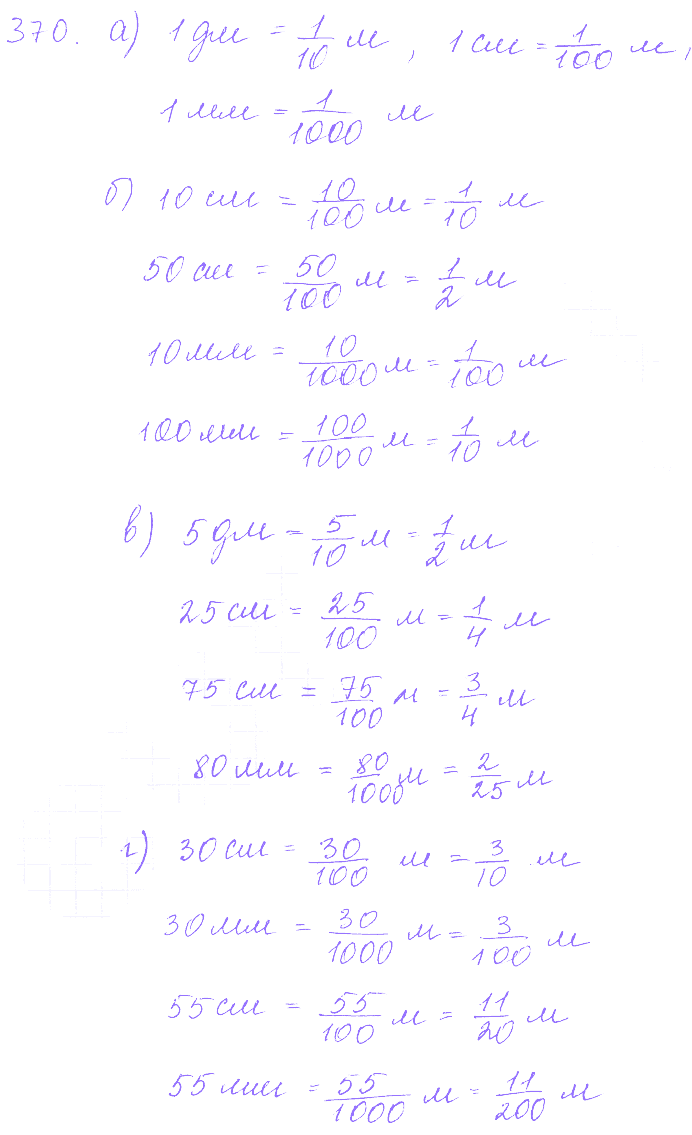 370. а) 1 дм = 1/10 м, 1 см = 1/100 м,
1 мм = 1/1000 м
б) 10 см = 10/100 м = 1/10 м
50 см = 50/100 м = 1/2 м
10 мм = 10/1000 м = 1/100 м
100 мм = 100/1000 м = 1/10 м
в) 5 дм = 5/10 м = 1/2 м
25 см = 25/100 м = 1/4 м
75 см = 75/100 м = 3/4 м
80 мм = 80/1000 м = 2/25 м
г) 30 см = 30/100 м = 3/10 м
30 мм = 30/1000 м = 3/100 м
55 см = 55/100 м = 11/20 м
55 мм = 55/1000 м = 11/200 м